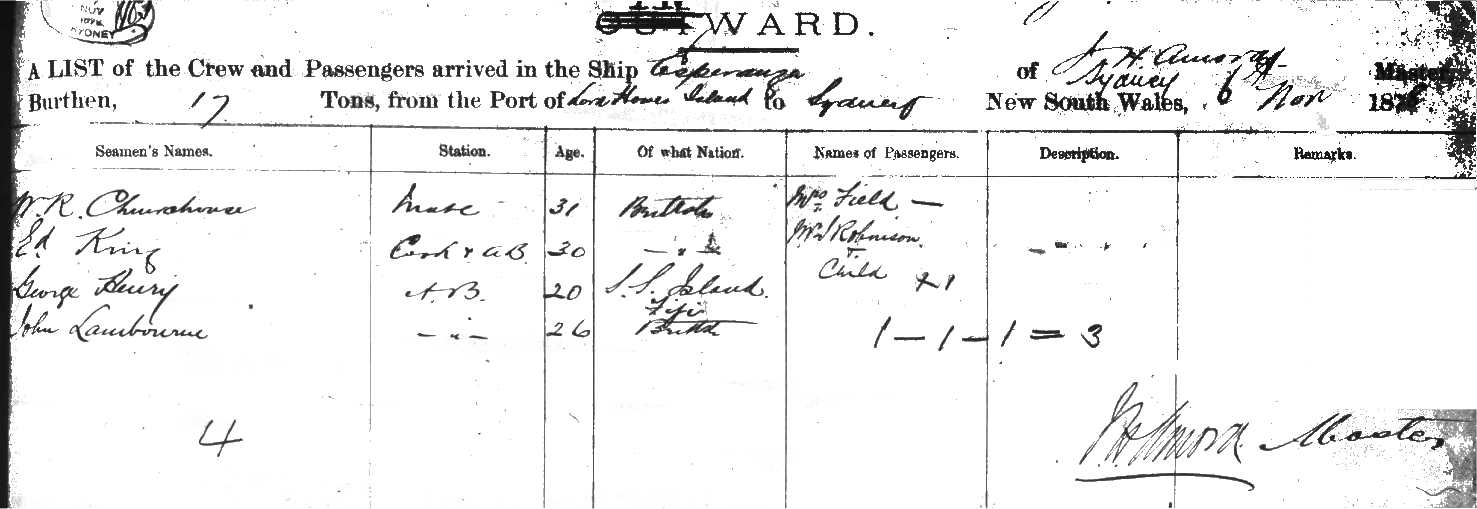 NOV
SYDNEY
INWARD.
A LIST of the Crew and Passengers arrived in the Ship Esperanza of J. H. Amora, Sydney Master,
Burthen, 17 Tons, from the Port of Lord Howes Island to Sydney New South Wales, 6 Nov 187
Seamen's Names. Station. Age. Of what Nation. Names of Passengers. Description. Remarks.
W. R. Churchouse Mate 31 British Mrs Field —
Ed King Cook & A B 30 — " — Mr J Robinson
George Henry A. B. 20 S. S. Island. Fiji Child 21
John Lambourne — " — 26 British 1 — 1 — 1 = 3
4
J. H. Amora Master